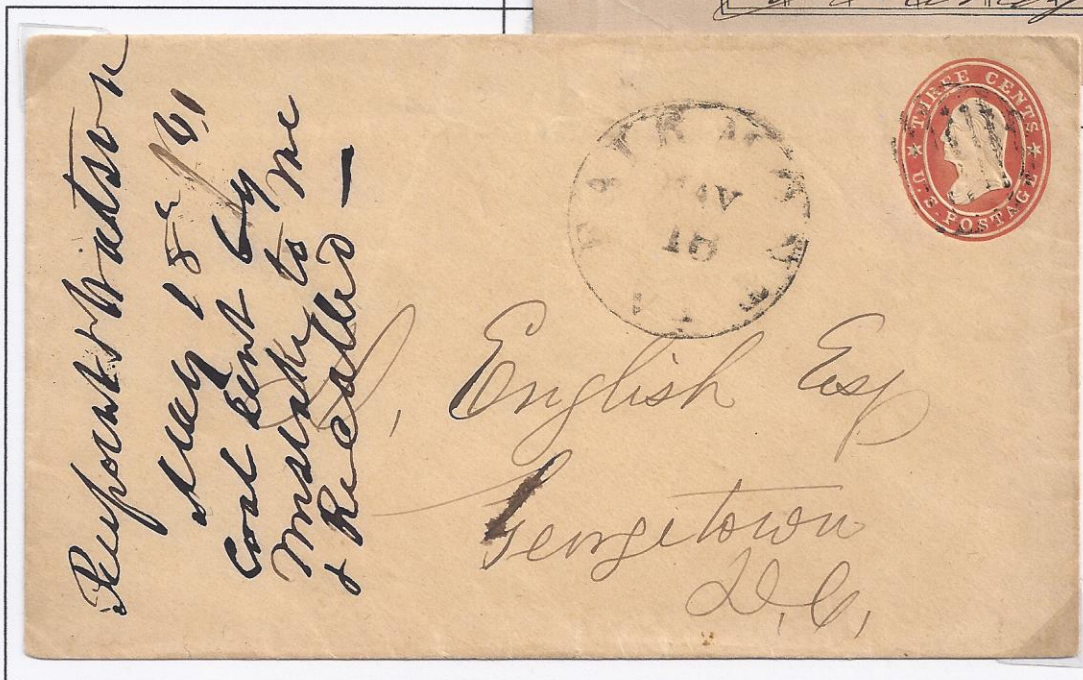 Peirpoint & Watson
May 18th / 61
Coal sent by
Mistake to me
& Recalled —
FAIRMONT
MAY
18
THREE CENTS
U.S. POSTAGE
English Esq
Georgetown
D.C.